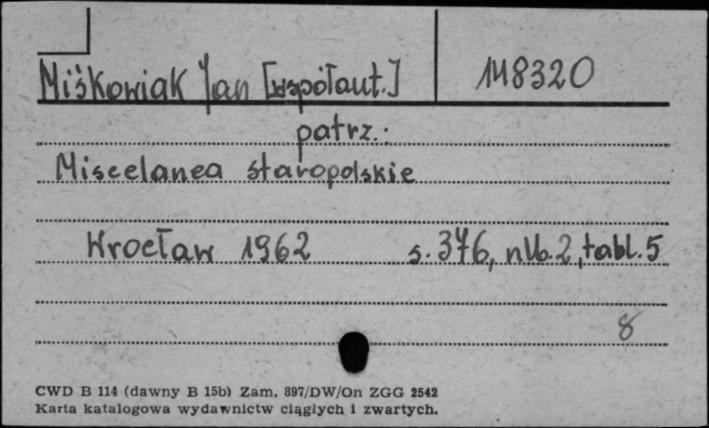 Miśkowiak Jan [współaut.] 148320
patrz.:
Miscelanea staropolskie
Wrocław 1962 s. 376, nlb. 2, tabl. 5
8
CWD B 114 (dawny B 15b) Zam. 897/DW/On ZGG 2542
Karta katalogowa wydawnictw ciągłych i zwartych.